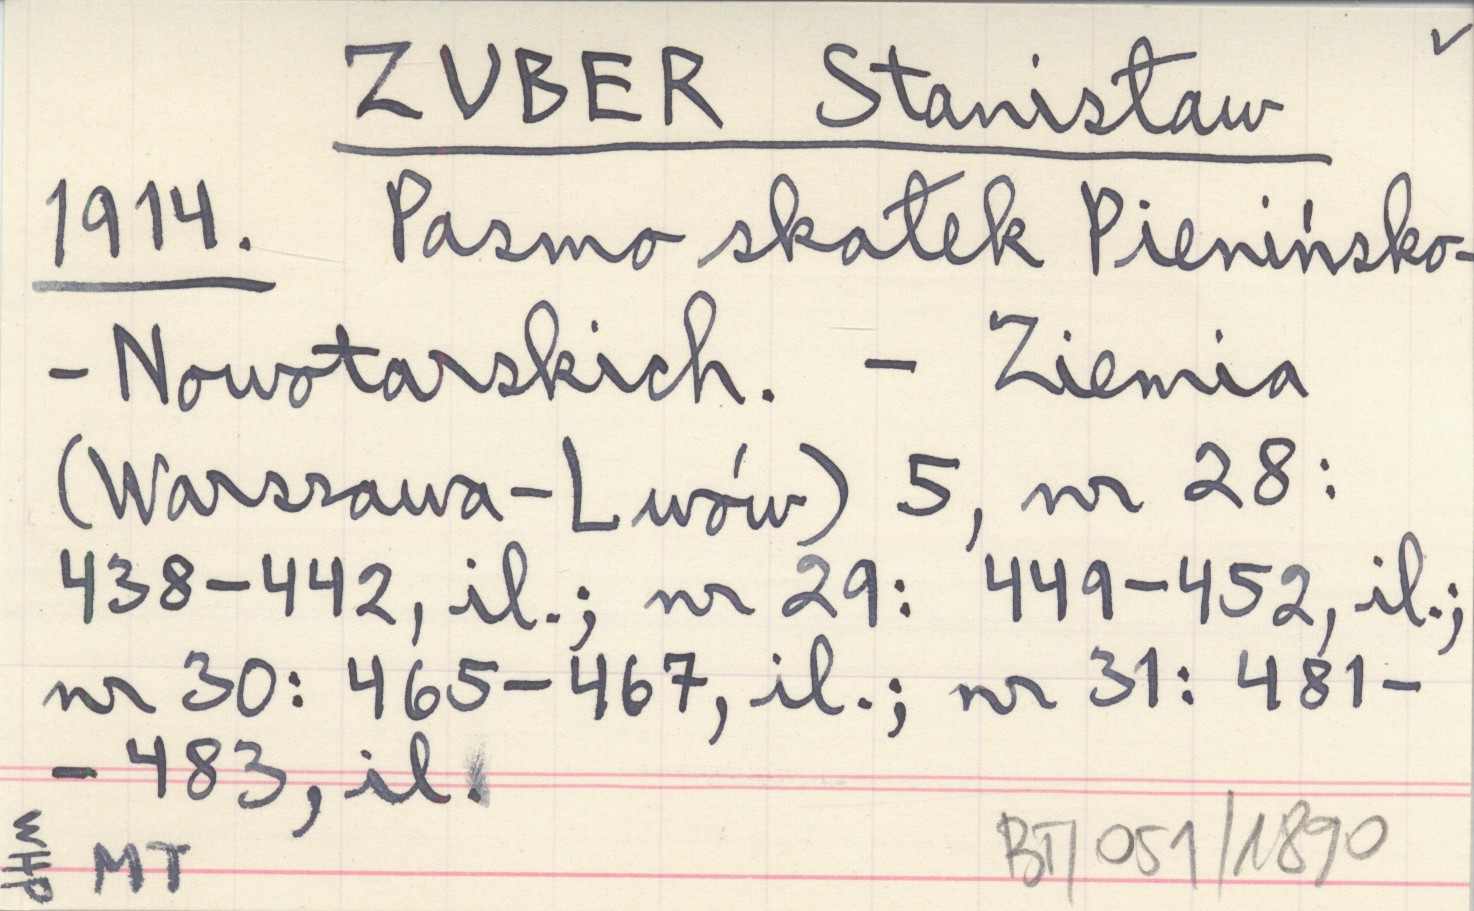 ✓
ZUBER Stanisław
1914. Pasmo skałek Pienińsko-
-Nowotarskich. - Ziemia
(Warszawa-Lwów) 5, nr 28:
438-442, il.; nr 29: 449-452, il.;
nr 30: 465-467, il.; nr 31: 481-
-483, il.
WHP
MT
BT/051/1890